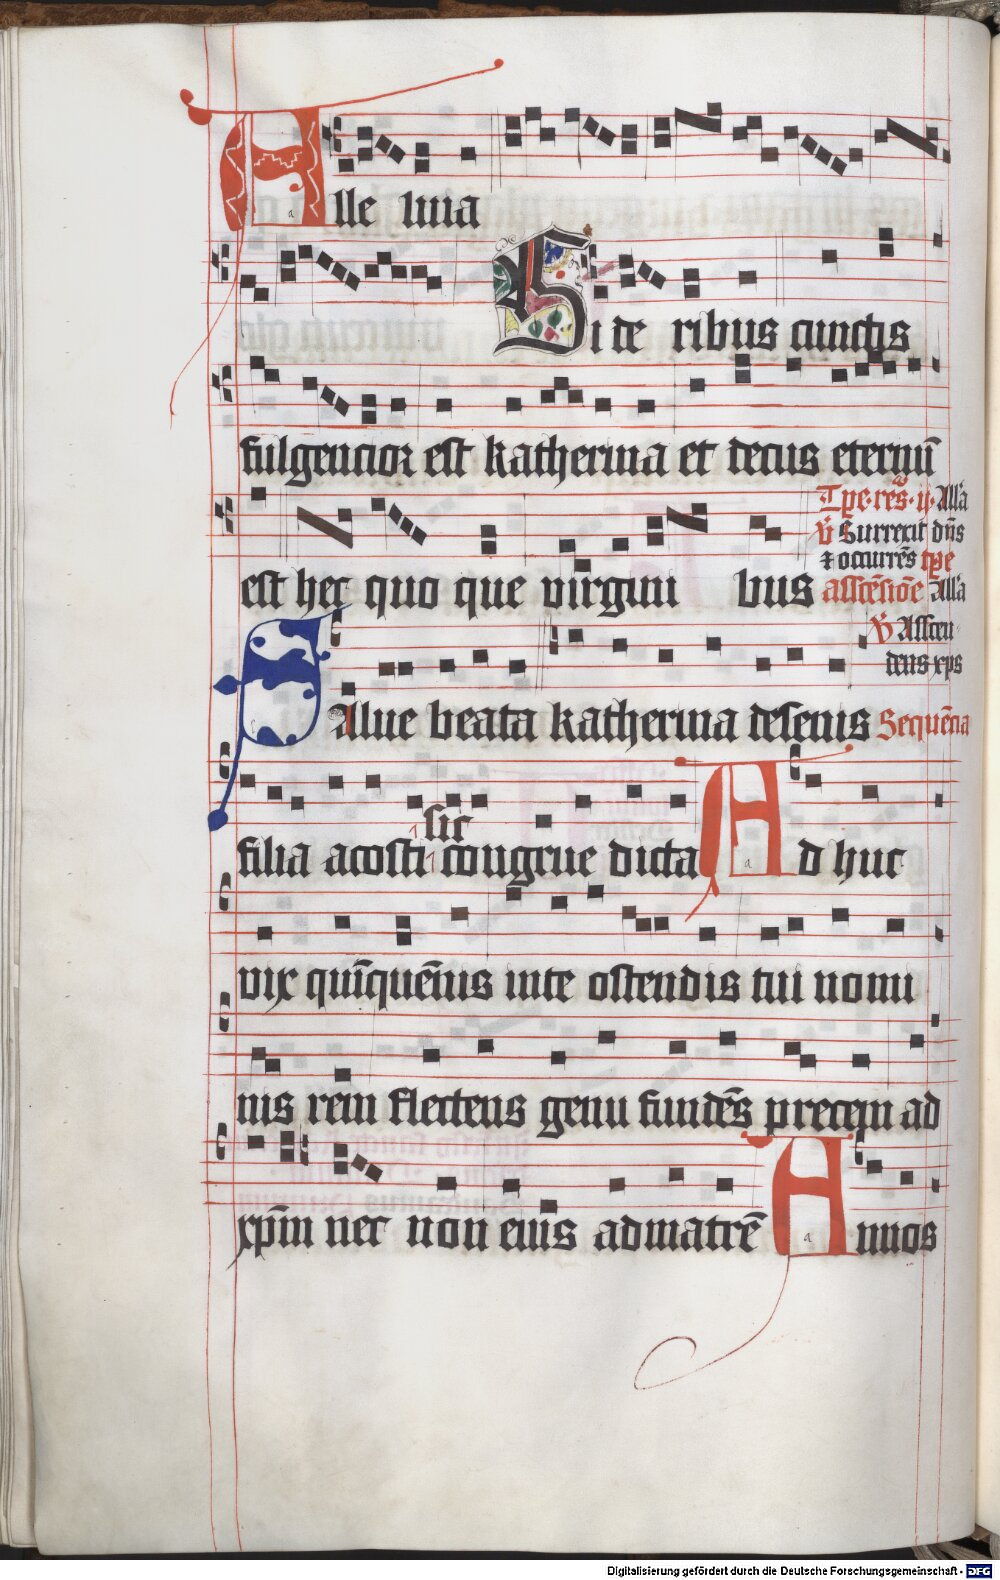 Alle luia
Si de ribus cunctis
fulgencior est katherina et decus eternū
est hec quo que virgini bus
Tpe resͬ. ij. Allʼa
v̄ Surrexit dn̄s
⁊ occurrēs tpe
asscēsiōē Allʼa
v̄ Asscen
dens xps
Salue beata katherina desenis Sequēcia
filia acosti congrue dicta Ad huc
sic
vix quīquēnis inte ostendis tui nomi
nis rem flectens genu fundēs precem ad
xpm̄ nec non eius admatrē Annos
Digitalisierung gefördert durch die Deutsche Forschungsgemeinschaft - DFG